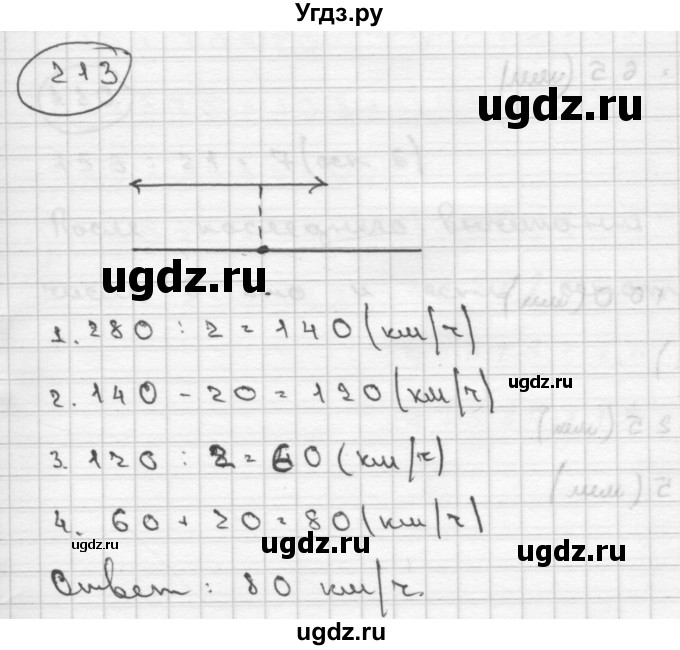 Угдз.ру
213
ugdz.ru
ugdz.ru
1. 280 : 2 = 140 (км/ч)
2. 140 - 20 = 120 (км/ч)
ugdz.ru
3. 120 : 2 = 60 (км/ч)
4. 60 + 20 = 80 (км/ч)
ugdz.ru
ugdz.ru
Ответ: 80 км/ч.
ugdz.ru